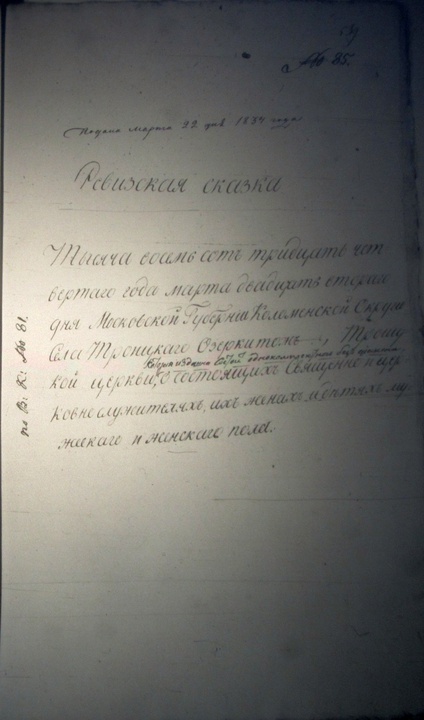 № 85.
Подана марта 22 дня 1834 года
Ревизская сказка
Тысяча восемь сотъ тридцать чет
вертаго года марта двадцать втораго
дня Московской Губерніи Коломенской Округи
Села Троицкаго Озерки тожъ, Троиц
кой церкви, о состоящихъ священно и цер
ковнослужителяхъ, ихъ женахъ и детяхъ му
жескаго и женскаго пола.
по В: К: № 81.